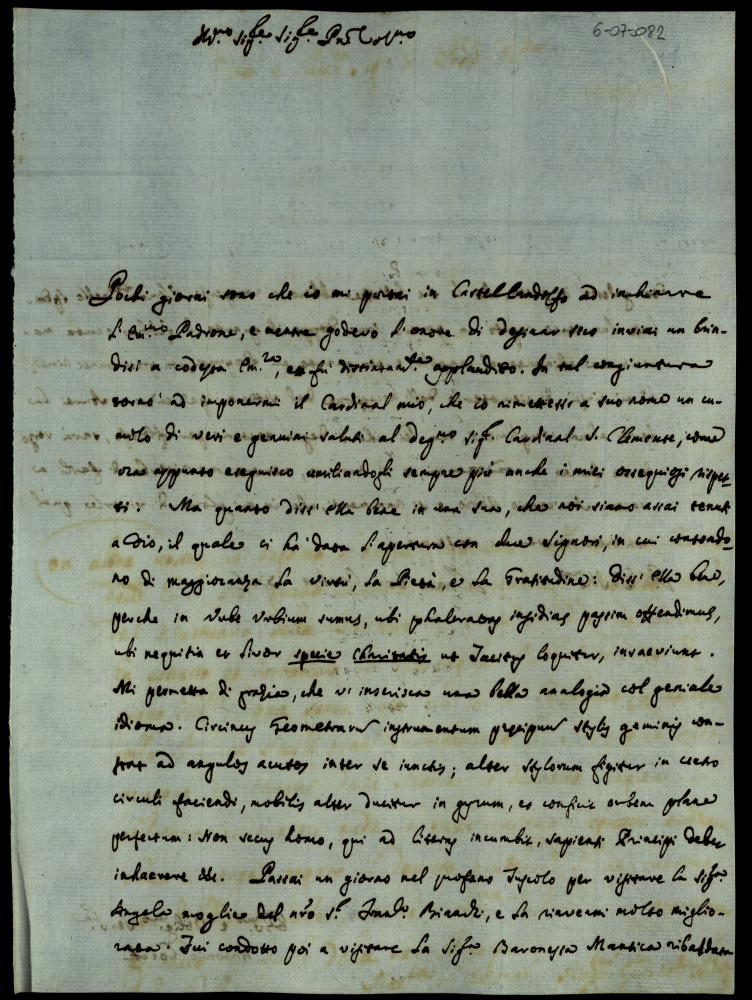 6-07-082
Ill.mo Sig.re Sig.re Pad. Col.mo
Pochi giorni sono che io mi portai in Castel Gandolfo ad inchinare
l'Em.mo Padrone, e mentre godevo l'onore di desinar seco inviai un brin-
disi a codesta Em.za, e fù distintam.te applaudito. In tal congiuntura
tornò ad impormi il Cardinal mio, che io rimettessi a suo nome un cu-
mulo di veri e genuini saluti al deg.mo Sig.r Cardinal S. Clemente, come
ora appunto eseguisco umiliandogli sempre più anche i miei ossequiosi rispet-
ti. Ma quanto diss'ella bene in una sua, che noi siamo assai tenuti
a Dio, il quale ci ha data l'apertura con due Signori, in cui contendo-
no di maggioranza la virtù, la Pietà, e la Gratitudine: diss'ella bene,
perche in Urbe Urbium sumus, ubi phaleratas insidias passim offendimus,
ubi nequitia et livor specie Charitatis ut Tacitus loquitur, invaeviunt.
Mi permetta di grazia, che v'inserisca una bella analogia col geniale
idioma. Circinus Geometrarum instrumentum praecipuum stylis geminis con-
stat ad angulos acutos inter se iunctis; alter stylorum figitur in centro
circuli faciendi, mobilis alter ducitur in gyrum, et conficit orbem plane
perfectum: Non secus homo, qui ad literas incumbit, sapienti Principi debet
inhaerere &c. Passai un giorno nel profano Tuscolo per visitare la Sig.ra
Angela moglie del nro S.r Bianchi, e la rinvenni molto miglio-
rata. Fui condotto poi a visitare la Sig.ra Baronessa Mantica